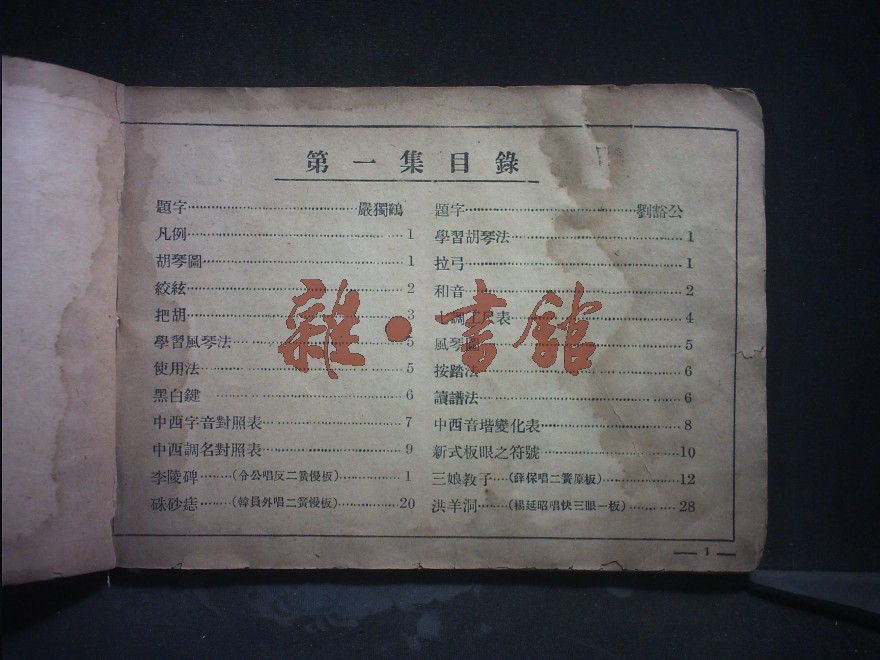 第一集目錄
題字……嚴獨鶴
凡例……1
胡琴圖……1
絞絃……2
把胡……3
學習風琴法……5
使用法……5
黑白鍵……6
中西字音對照表……7
中西調名對照表……9
李陵碑……(令公唱反二簧慢板)……1
硃砂痣……(韓員外唱二簧慢板)……20
題字……劉豁公
學習胡琴法……1
拉弓……1
和音……2
調工尺表……4
風琴圖……5
按踏法……6
讀譜法……6
中西音堦變化表……8
新式板眼之符號……10
三娘教子……(薛保唱二簧原板)……12
洪羊洞……(楊延昭唱快三眼一板)……28
1
雜·書館